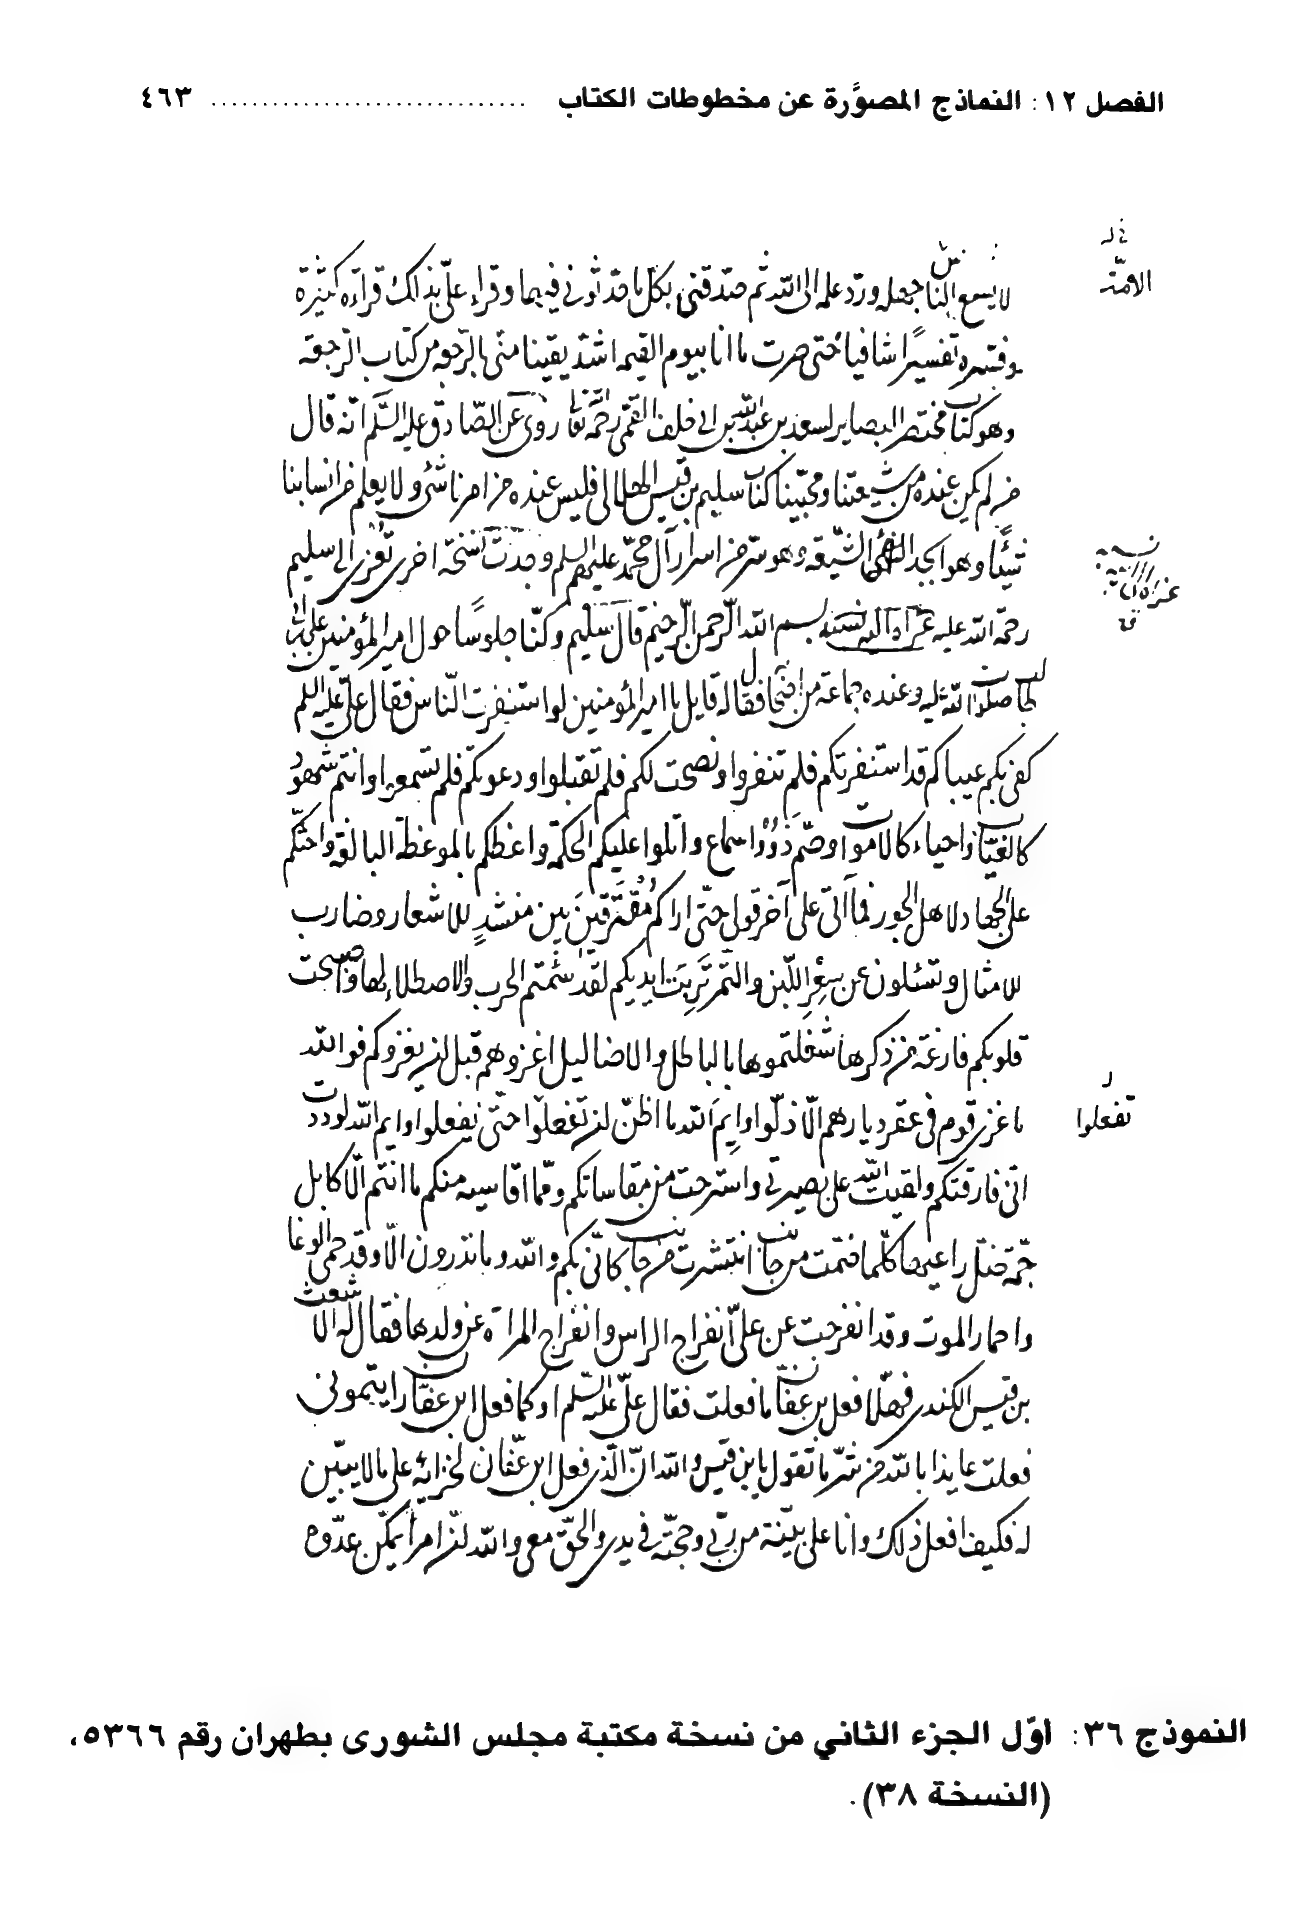 الفصل ١٢: النماذج المصوَّرة عن مخطوطات الكتاب .............................. ٤٦٣
الامّة
لا يسمع الناس جعله وردّ علمه الى الله ثم صدّقنى بكل ما حدثونى فيها وقراء علىّ بذلك قراءه كثيرة
وفسره تفسيرًا شافيا حتى صرت ما انا بيوم القيمه اشد يقينا منى بالرجعه من كتاب الرجعه
وهو كتاب مختصر البصاير لسعد بن عبدالله بن ابى خلف القمّى رحمه روى عن الصّادق عليه السّلم انه قال
من لم يكن عنده من شيعتنا ومحبّينا كتاب سليم بن قيس الهلالى فليس عنده من امرنا شىء ولا يعلم من اسبابنا
شيئًا وهو ابجد الشّيعه وهو سرّ من اسرار آل محمّد عليهم السلم وجدت نسخة اخرى تعزى الى سليم
رحمة الله عليه بسم الله الرّحمن الرّحيم قال سليم وكنّا جلوسًا حول امير المؤمنين على بن ابى
طالب صلوات الله عليه وعنده جماعة من اصحابه فقال له قايل يا امير المؤمنين لو استنفرت النّاس فقال علىّ عليه السلم
كفى بكم عيبا كم قد استنفرتكم فلم تنفروا ونصحت لكم فلم تقبلوا ودعوتكم فلم تسمعوا وانتم شهود
كالغيّاب واحياء كالاموات وصمّ ذَوُوا اسماع واتلوا عليكم الحكمة واعظكم بالموعظة البالغة واحثّكم
على الجهاد لاهل الجور فما آتى على آخر قولى حتّى اراكم مُتَفرّقين بين منشدٍ للاشعار وضارب
للامثال وتسئلون عن سِعْرِ اللّبن والتمر تَرِبَت ايديكم لقد سئمتم الحرب والاصطلاء لها واصبحت
قلوبكم فارغة من ذكرها شغلتموها بالباطل والاضاليل اغزوهم قبل ان يغزوكم فو الله
ما غزى قوم فى عقر ديارهم الّا ذلّوا وايم الله ما اظنّ ان تفعلوا حتّى يفعلوا وايم الله لوددت
تفعلوا
انى فارقتكم ولقيت الله على بصيرتى واسترحت من مقاساتكم ومما اقاسيه منكم ما انتم الّا كابل
جمّة ضلّ راعيها كلّما ضمّت من جانب انتشرت من جانب كانّى بكم والله وما تذرون الّا وقد حمى الوغا
واحمار الموت وقد انفرجت عن علىّ انفراج الراس وانفراج المراة عن ولدها فقال له الاشعث
بن قيس الكندى فهلّا فعل بن عفّان ما فعلت فقال علىّ عليه السّلم او كما فعل ابن عفّان رايتمونى
فعلت عايذا بالله من شرّ ما تقول يا بن قيس والله انّ الّذى فعل ابن عفّان لمخزاية على ما لا يبيّن
له فكيف افعل ذلك وانا على بيّنة من ربّى وحجّته فى يدى والحقّ معى والله ان امراً يمكّن عدوه
النموذج ٣٦: أوّل الجزء الثاني من نسخة مكتبة مجلس الشورى بطهران رقم ٥٣٦٦،
(النسخة ٣٨).